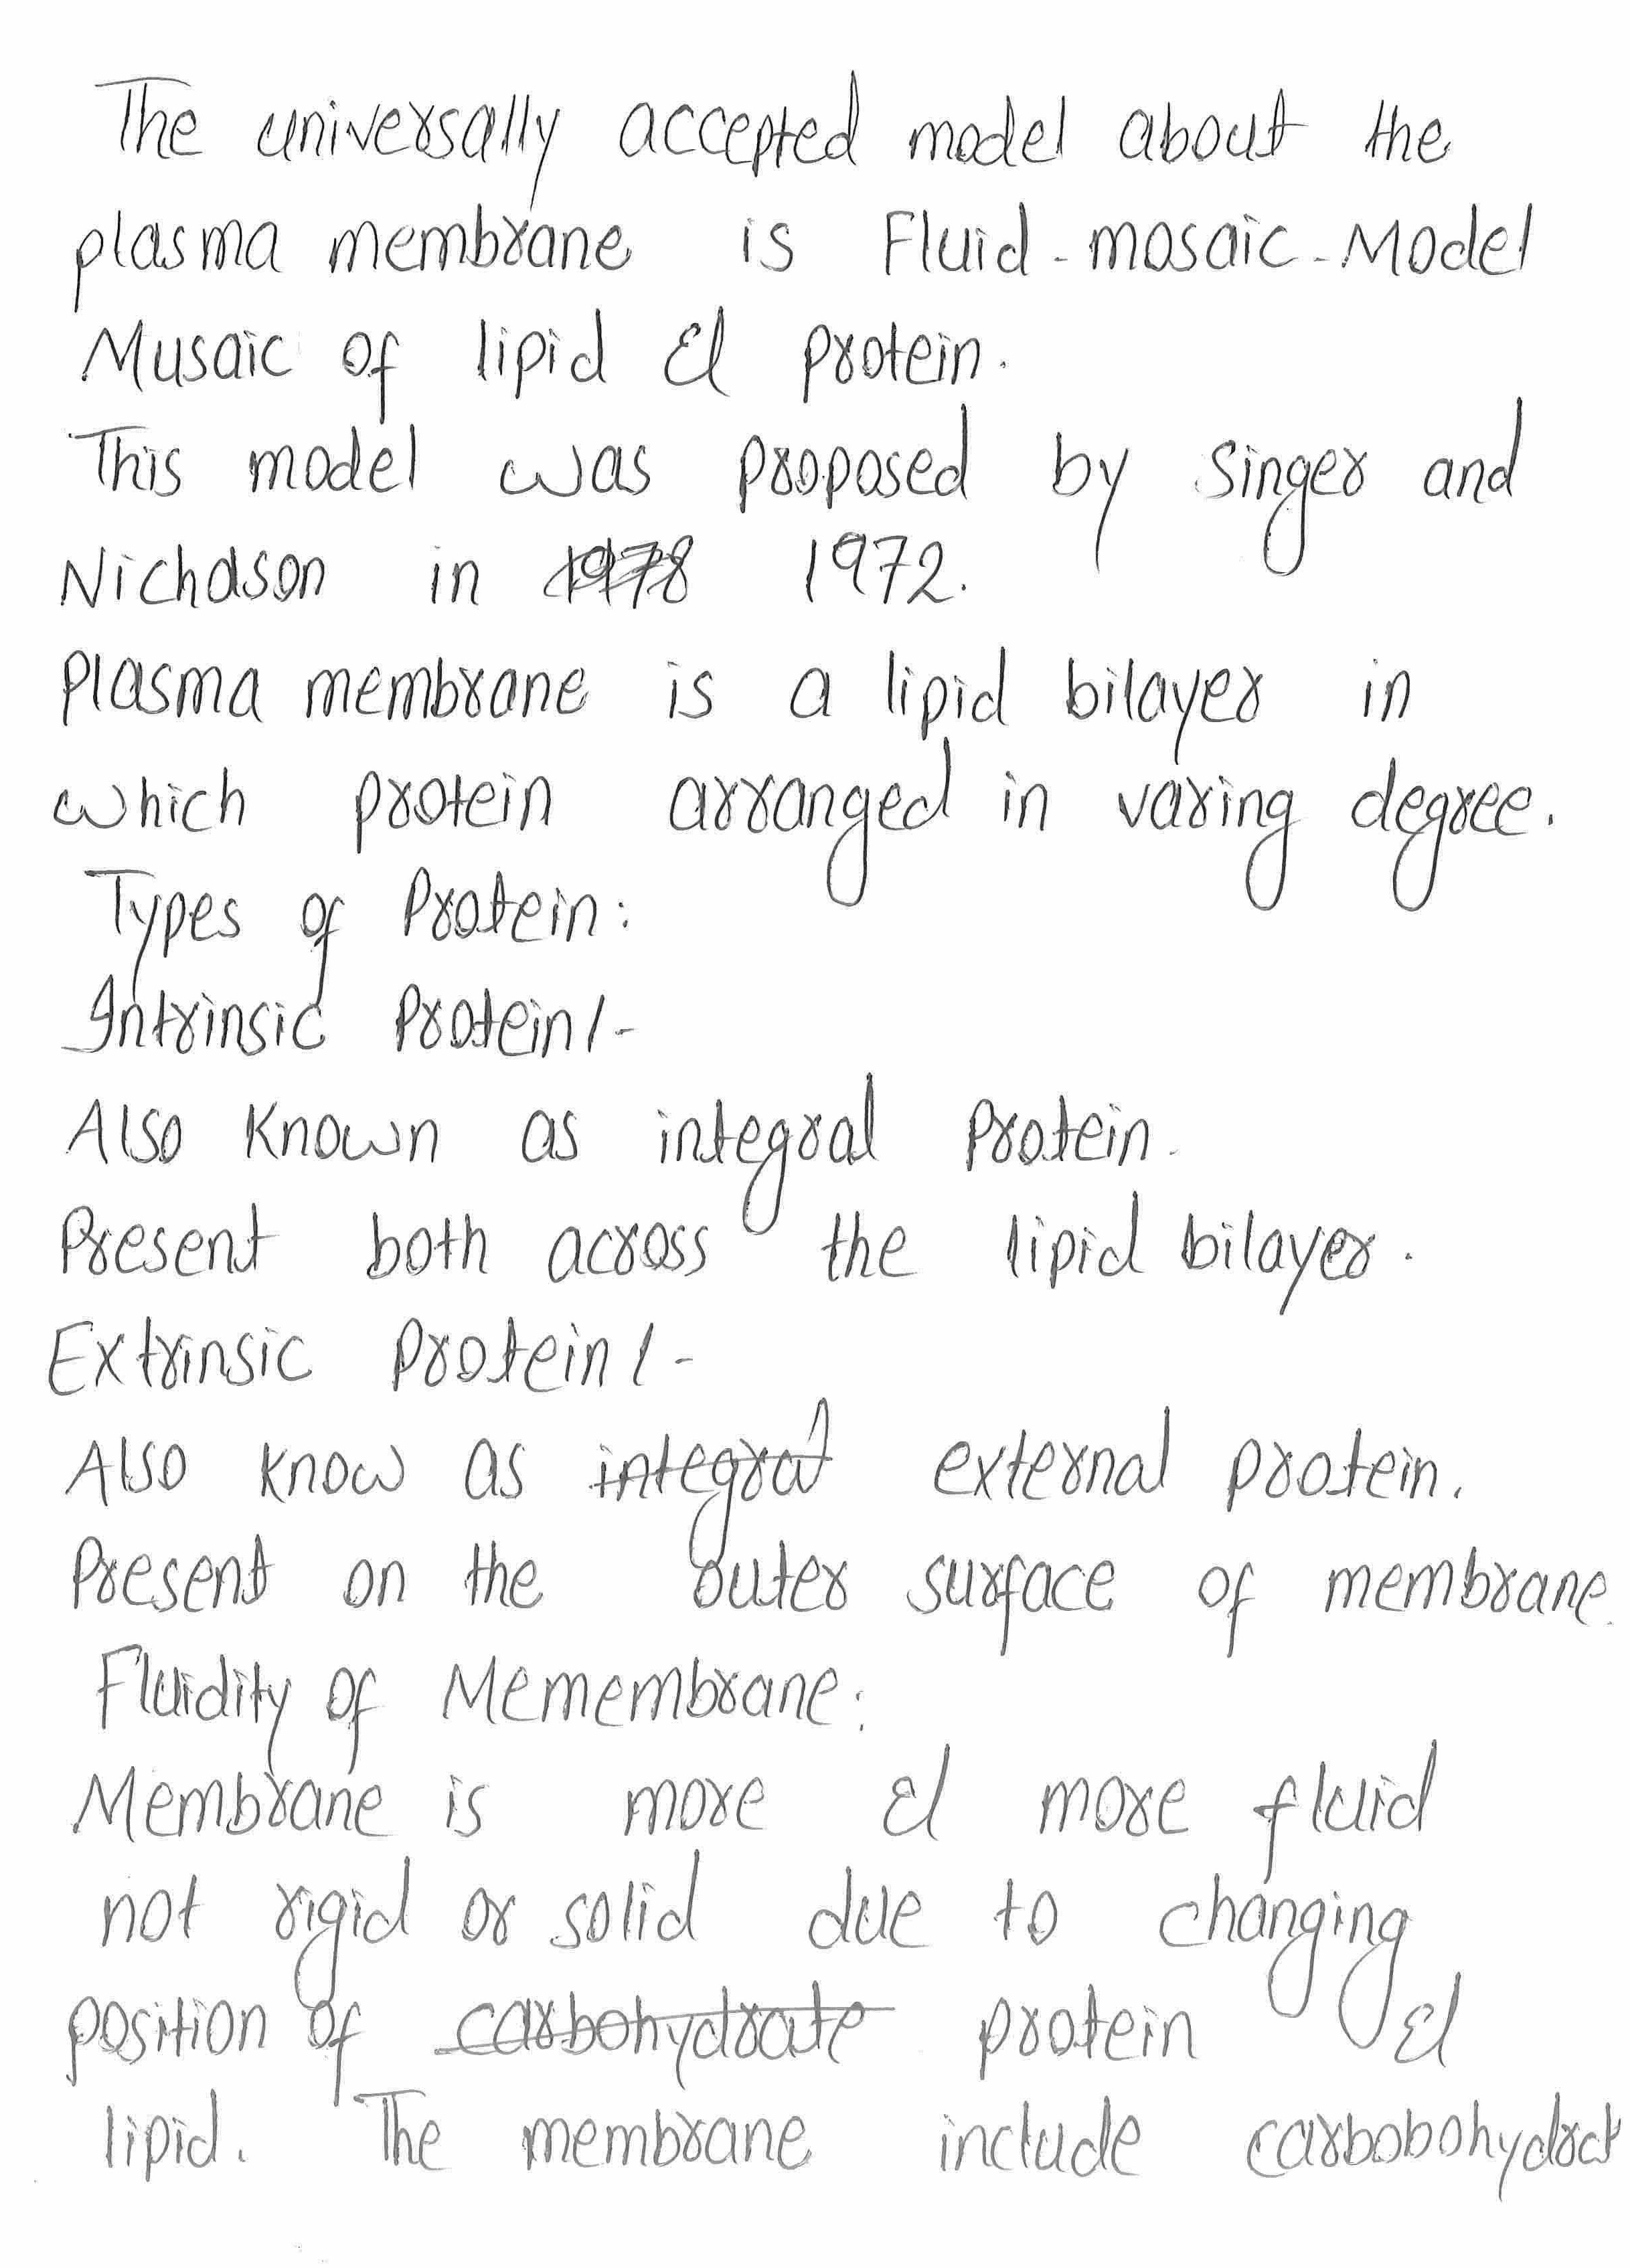 The universally accepted model about the
plasma membrane is Fluid-mosaic-Model
Musaic of lipid & protein.
This model was proposed by singer and
Nicholson in 1978 1972.
Plasma membrane is a lipid bilayer in
which protein arranged in varing degree.
Types of Protein:
Intrinsic Protein/-
Also Known as integral Protein.
Present both across the lipid bilayer.
Extrinsic Protein/-
Also know as integral external protein.
Present on the outer surface of membrane.
Fluidity of Memembrane:
Membrane is more & more fluid
not rigid or solid due to changing
position of carbohydrate protein &
lipid. The membrane include